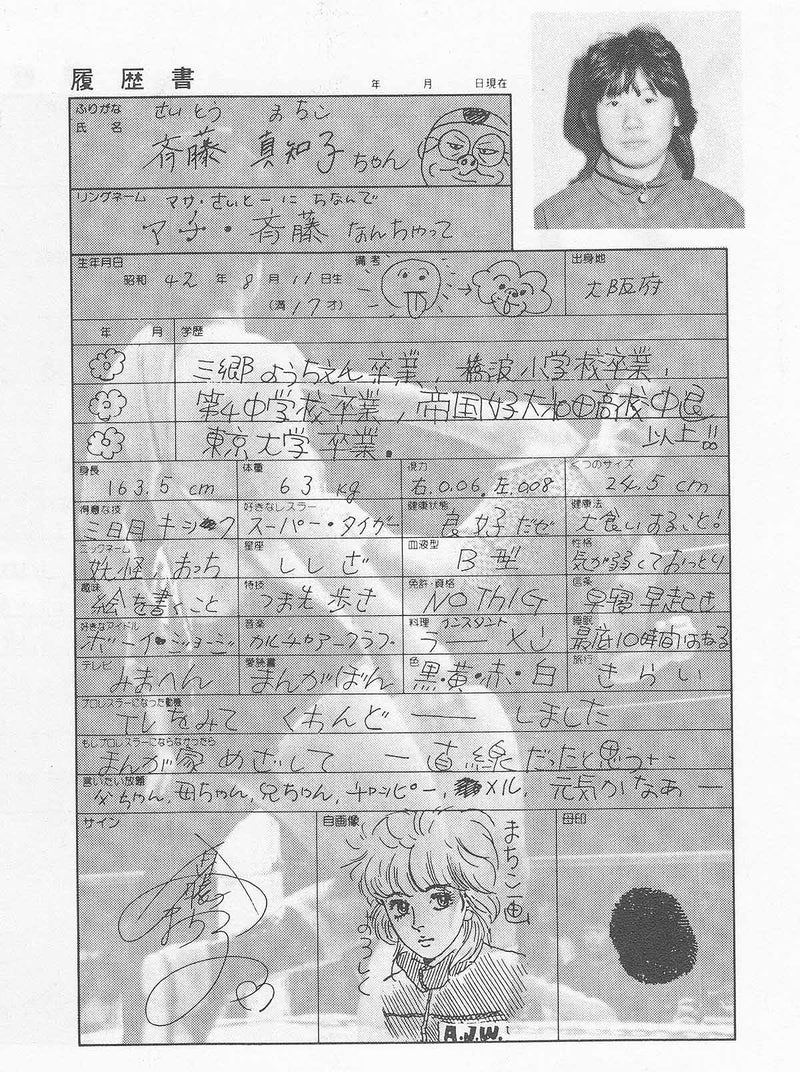 履歴書
年 月 日現在
ふりがな さいとう まちこ
氏名 斉藤 真知子ちゃん
リングネーム マサ・さいとーにちなんで
マチ・斉藤 なんちゃって
生年月日 備考 出身地
昭和 42 年 8 月 11 日生
(満 17 才)
大阪府
年 月 学歴
三郷ようちえん卒業, 橋波小学校卒業,
第4中学校卒業, 帝国女子大和田高校中退
東京大学卒業. 以上!!
身長 体重 視力 くつのサイズ
163.5 cm 63 kg 右.0.06.左.0.08 24.5 cm
得意な技 好きなレスラー 健康状態 健康法
三日月キック スーパー・タイガー 良好だぜ 大食いすること!
ニックネーム 星座 血液型 性格
妖怪, おっち ししざ B型 気が弱くておっとり
趣味 特技 免許・資格 信条
絵を書くこと つま先歩き NOThIG 早寝早起き
好きなアイドル 音楽 料理 インスタント 睡眠
ボーイ・ジョージ カルチャアークラブ ラーメン 最底10時間はねる
テレビ 愛読書 色 旅行
みまへん まんがぼん 黒・黄・赤・白 きらい
プロレスラーになった動機
TVをみて くわんどー しました
もしプロレスラーにならなかったら
まんが家めざして 一直線だったと思うナー
言いたい放題
父ちゃん, 母ちゃん, 兄ちゃん, チャッピー, メル, 元気かなあー
サイン 自画像 母印
斉藤まちこ
まちこ画
よろしく
A.J.W.